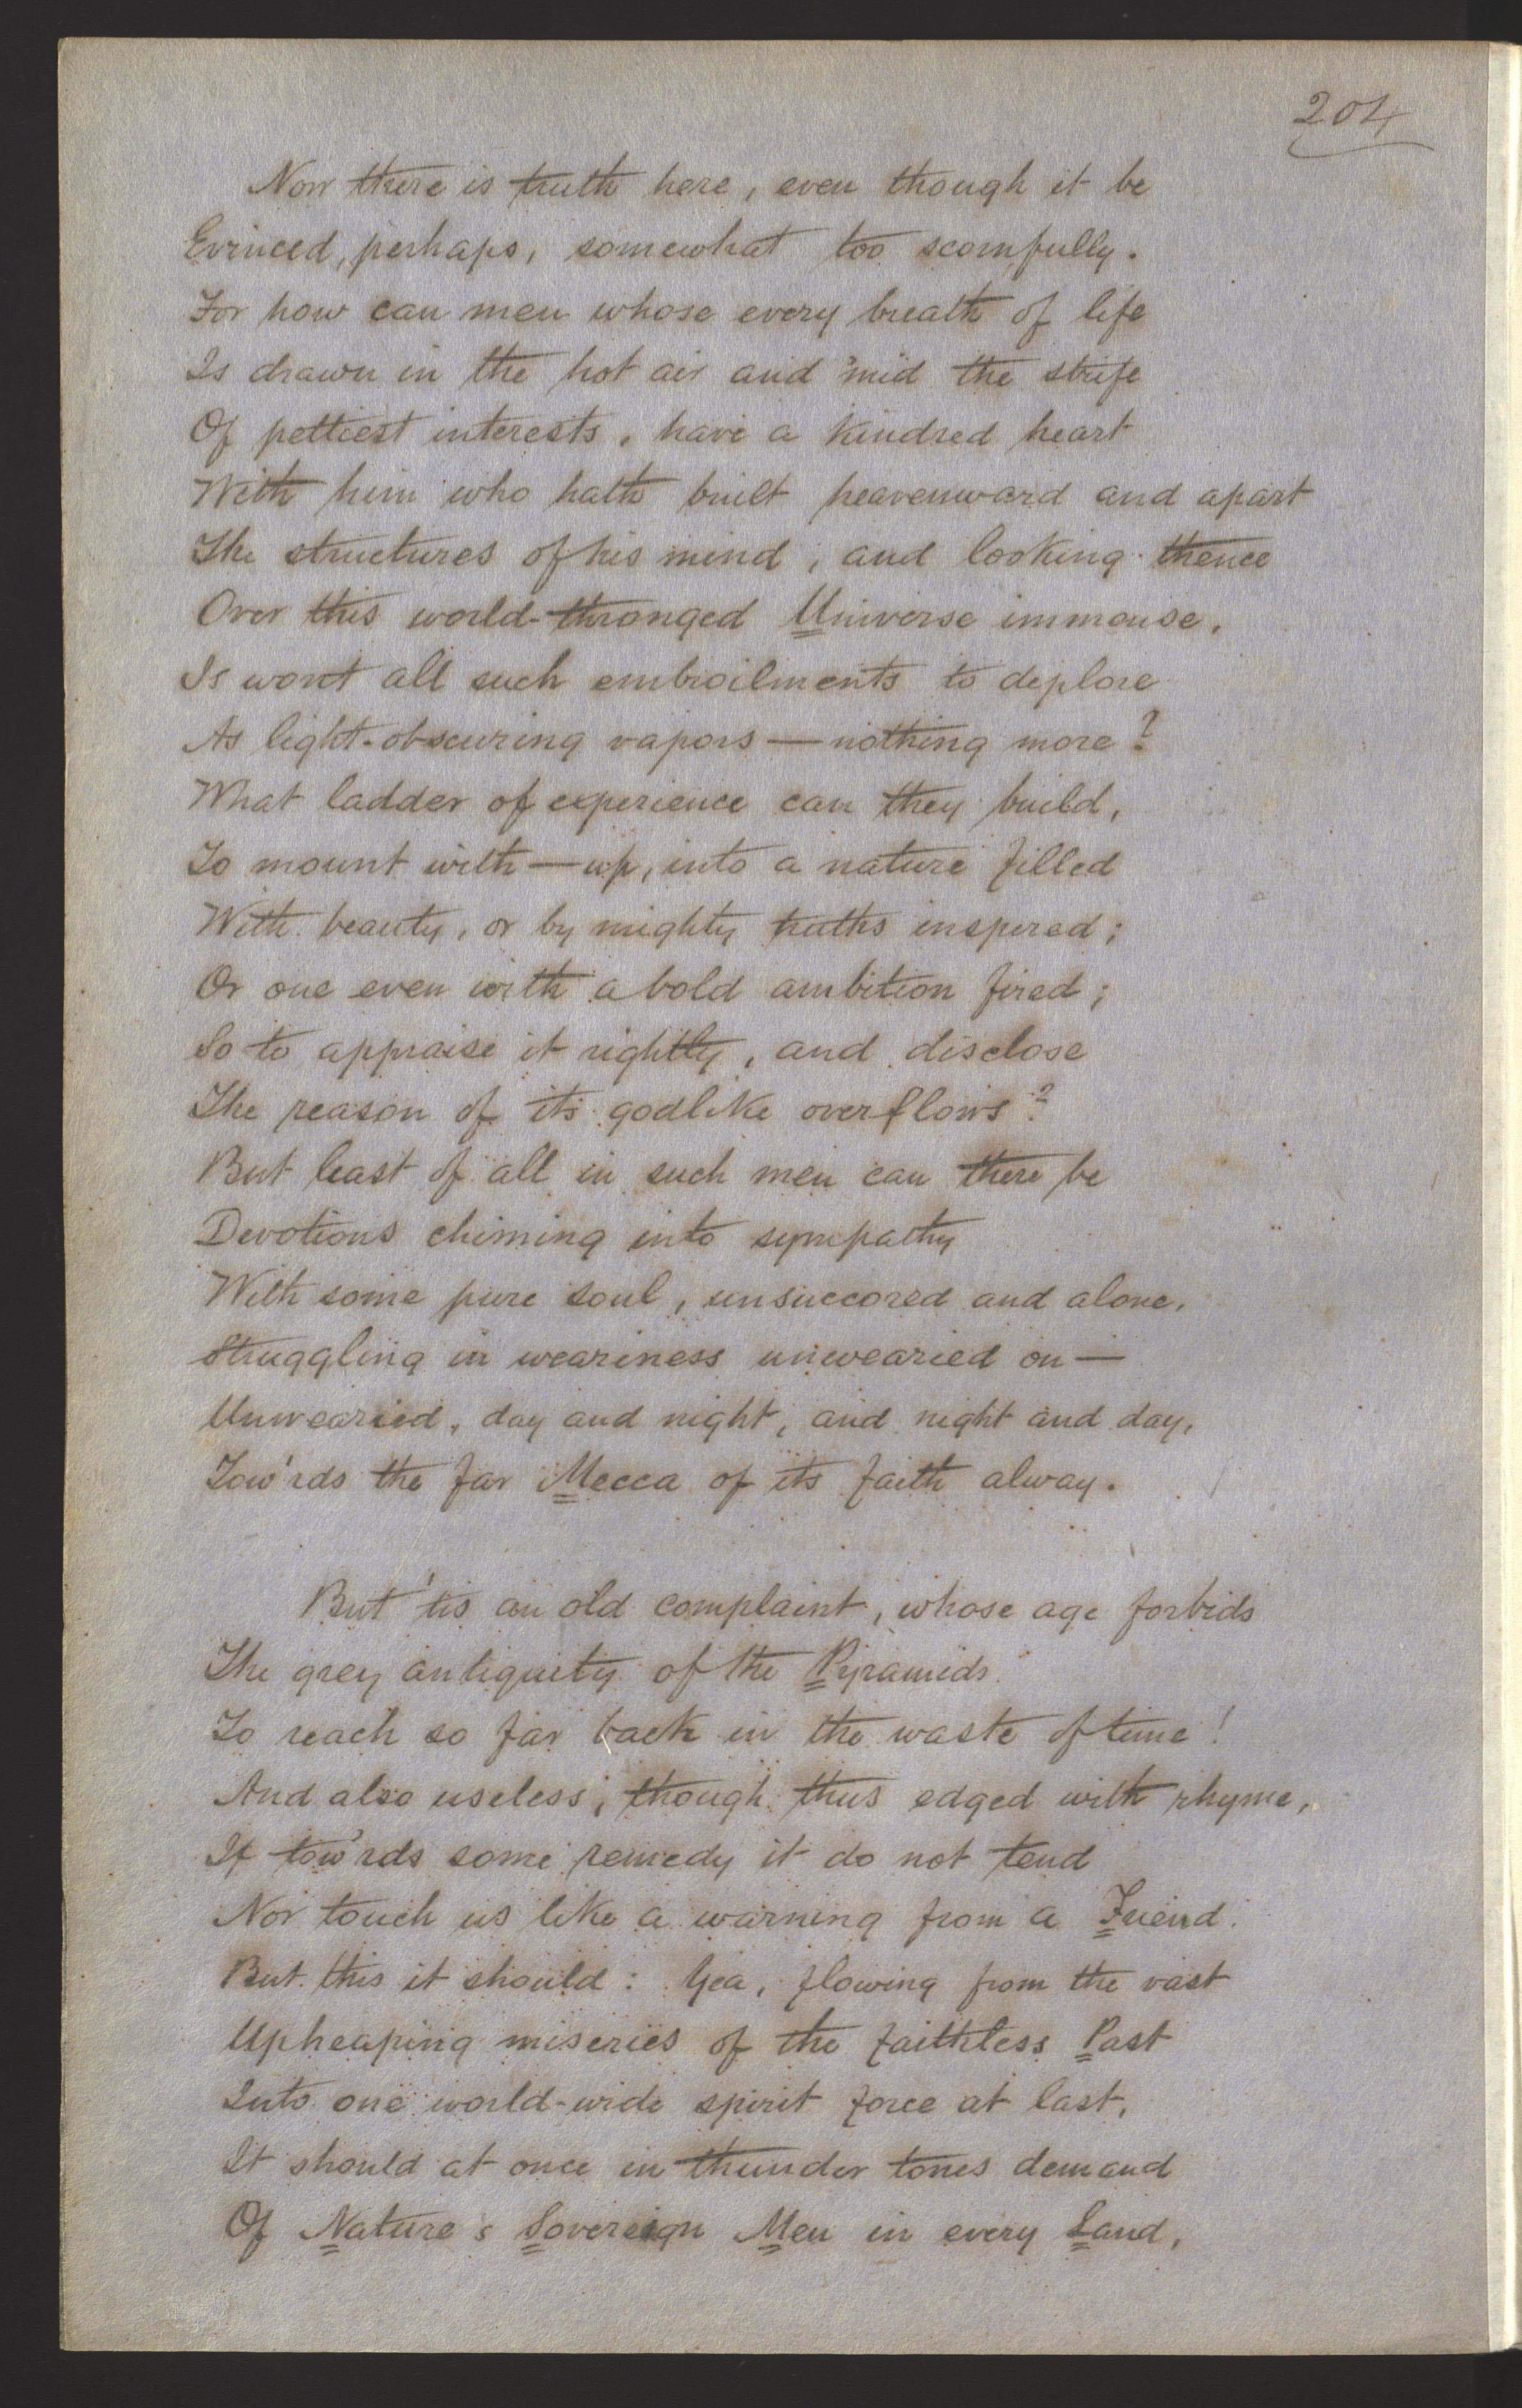 204
Now there is truth here, even though it be
Evinced, perhaps, somewhat too scornfully.
For how can men whose every breath of life
Is drawn in the hot air and 'mid the strife
Of pettiest interests, have a kindred heart
With him who hath built heavenward and apart
The structures of his mind, and looking thence
Over this world-thronged Universe immense,
Is wont all such embroilments to deplore
As light-obscuring vapors — nothing more?
What ladder of experience can they build,
To mount with — up, into a nature filled
With beauty, or by mighty truths inspired;
Or one even with a bold ambition fired;
So to appraise it rightly, and disclose
The reason of its godlike overflows?
But least of all in such men can there be
Devotions chiming into sympathy
With some pure soul, unsuccored and alone,
Struggling in weariness unwearied on —
Unwearied, day and night, and night and day,
Tow'rds the far Mecca of its faith alway.
But 'tis an old complaint, whose age forbids
The grey antiquity of the Pyramids
To reach so far back in the waste of time!
And also useless, though thus edged with rhyme,
If tow'rds some remedy it do not tend
Nor touch us like a warning from a Friend.
But this it should: Yea, flowing from the vast
Upheaping miseries of the faithless Past
Into one world-wide spirit force at last,
It should at once in thunder tones demand
Of Nature's Sovereign Men in every Land,